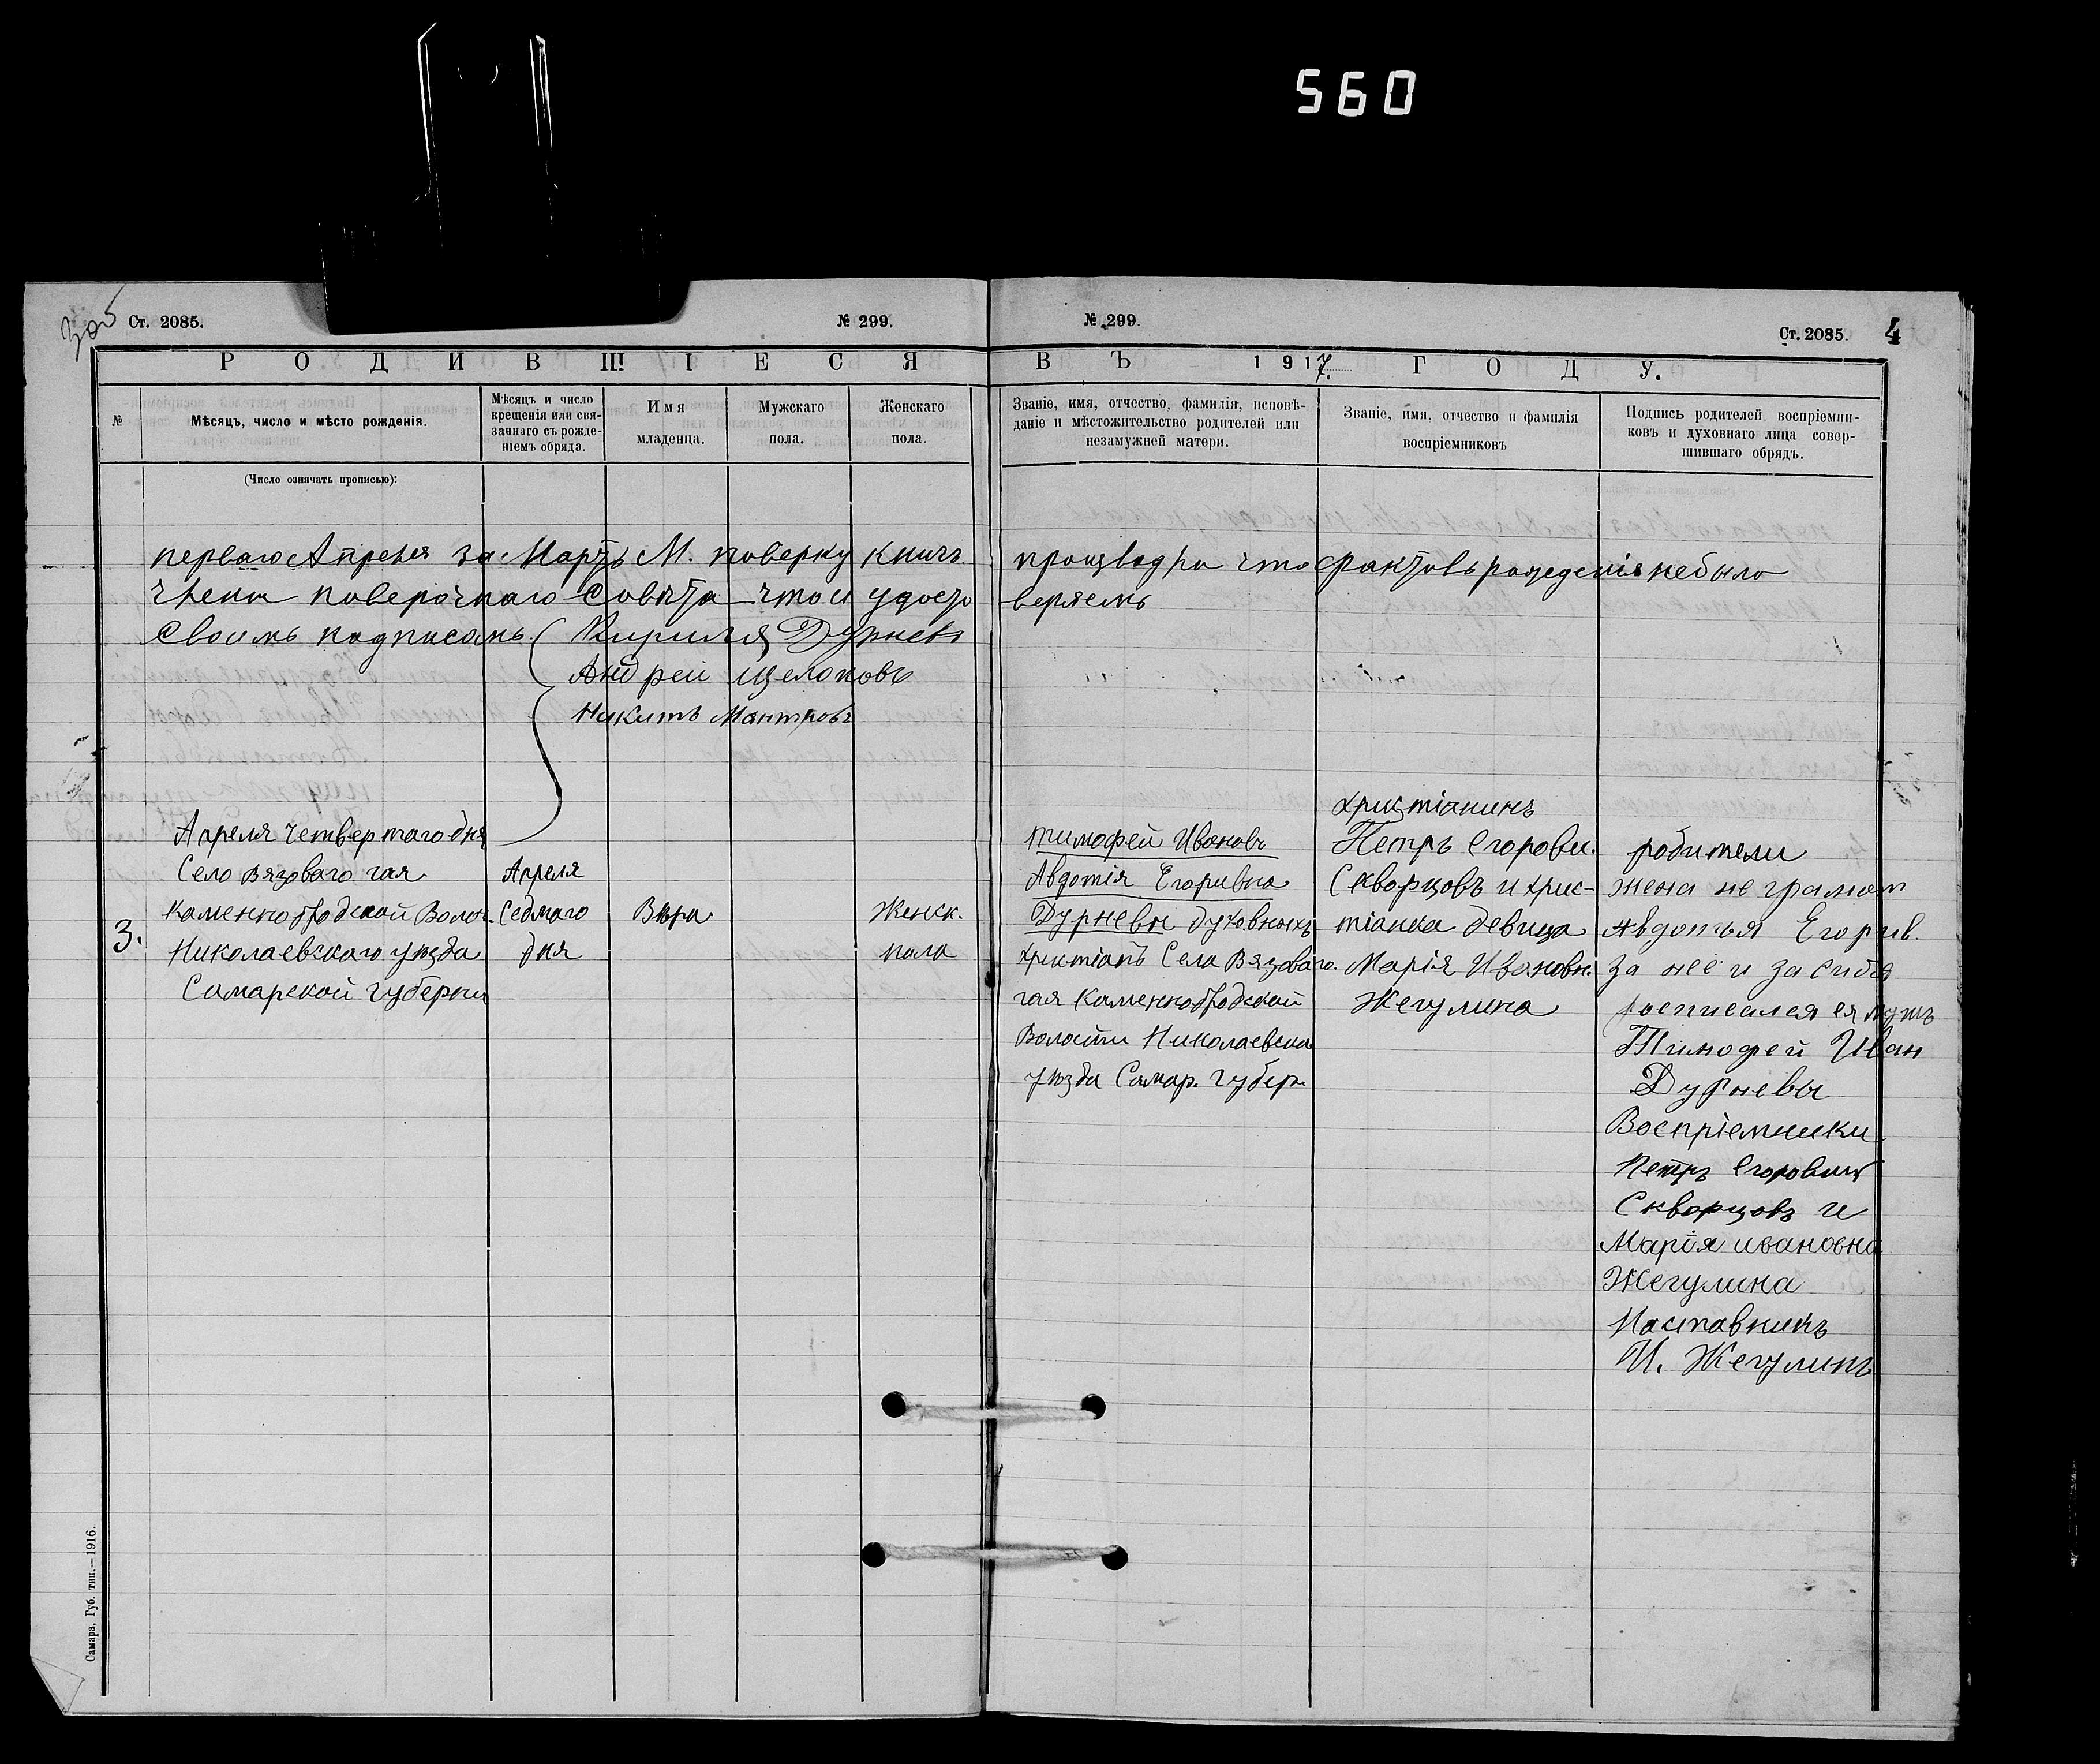 560
305
Ст. 2085.
№ 299.
№ 299.
Ст. 2085.
4
РОДИВШІЕСЯ ВЪ 1917. ГОДУ.
№
Мѣсяцъ, число и мѣсто рожденія.
Мѣсяцъ и число
крещенія или свя-
заннаго съ рожде-
ніемъ обряда.
Имя
младенца.
Мужскаго
пола.
Женскаго
пола.
Званіе, имя, отчество, фамилія, исповѣ-
даніе и мѣстожительство родителей или
незамужней матери.
Званіе, имя, отчество и фамилія
воспріемниковъ
Подпись родителей воспріемни-
ковъ и духовнаго лица совер-
шившаго обрядъ.
(Число означать прописью):
перваго Апреля за Мартъ М. поверку книгъ производри что фактовъ рожденія небыло
члени поверочнаго Совѣта что и удосто веряемъ
Своимъ подписамъ
Кирилл Дурневъ
Андреи Щелоковъ
Никитъ Мантровъ
3.
Апреля четвертаго дня
Село Вязоваго гая
Каменнобродской Волос.
Николаевскаго уѣзда
Самарской губерни
Апреля
Седмаго
дня
Вѣра
Женск.
пола
Тимофей Ивановъ
Авдотія Егоривна
Дурневы духовныхъ
христіанъ Села Вязоваго.
гая Каменнобродской
Волости Николаевска
уѣзда Самар. губер.
христіанинъ
Петръ Егорови.
Скворцовъ и хрис-
тіанка девица
Марія Ивановн.
Жегулина
родители
жена не грамот
Авдотья Егорив.
за неё и за сибя
росписался ея мужъ
Тимофей Иван
Дурневы
Воспріемники
Петръ Егоровичъ
Скворцовъ и
Марія ивановна
Жегулина
Наставникъ
И. Жегулинъ
Самара, Губ. тип.—1916.